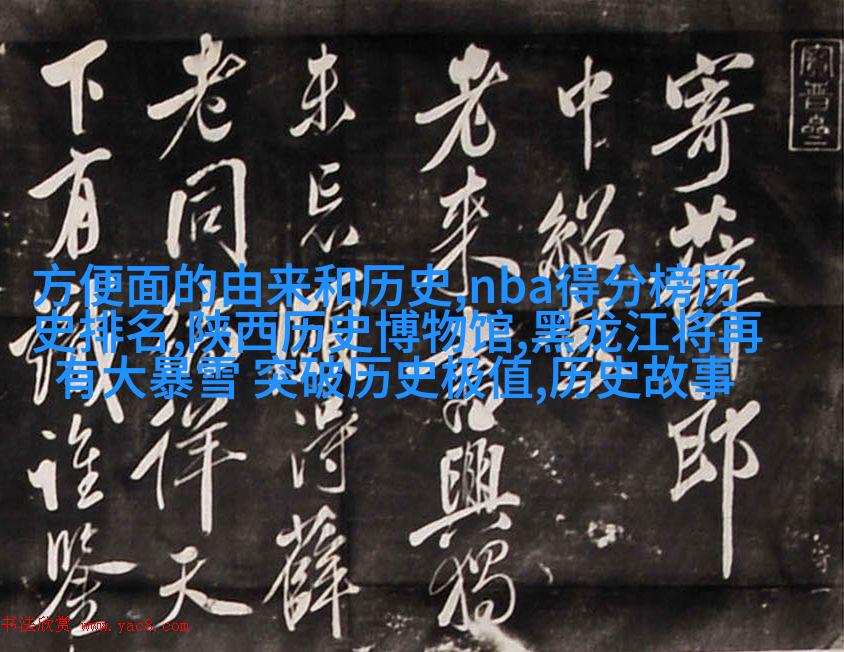 寄薛郎
中紹
老來書興獨
未忘得薛
老同徉天
下有識誰鑒
方便面的由来和历史,nba得分榜历
史排名,陕西历史博物馆,黑龙江将再
有大暴雪 突破历史极值,历史故事
书法欣赏 www.yac8.com